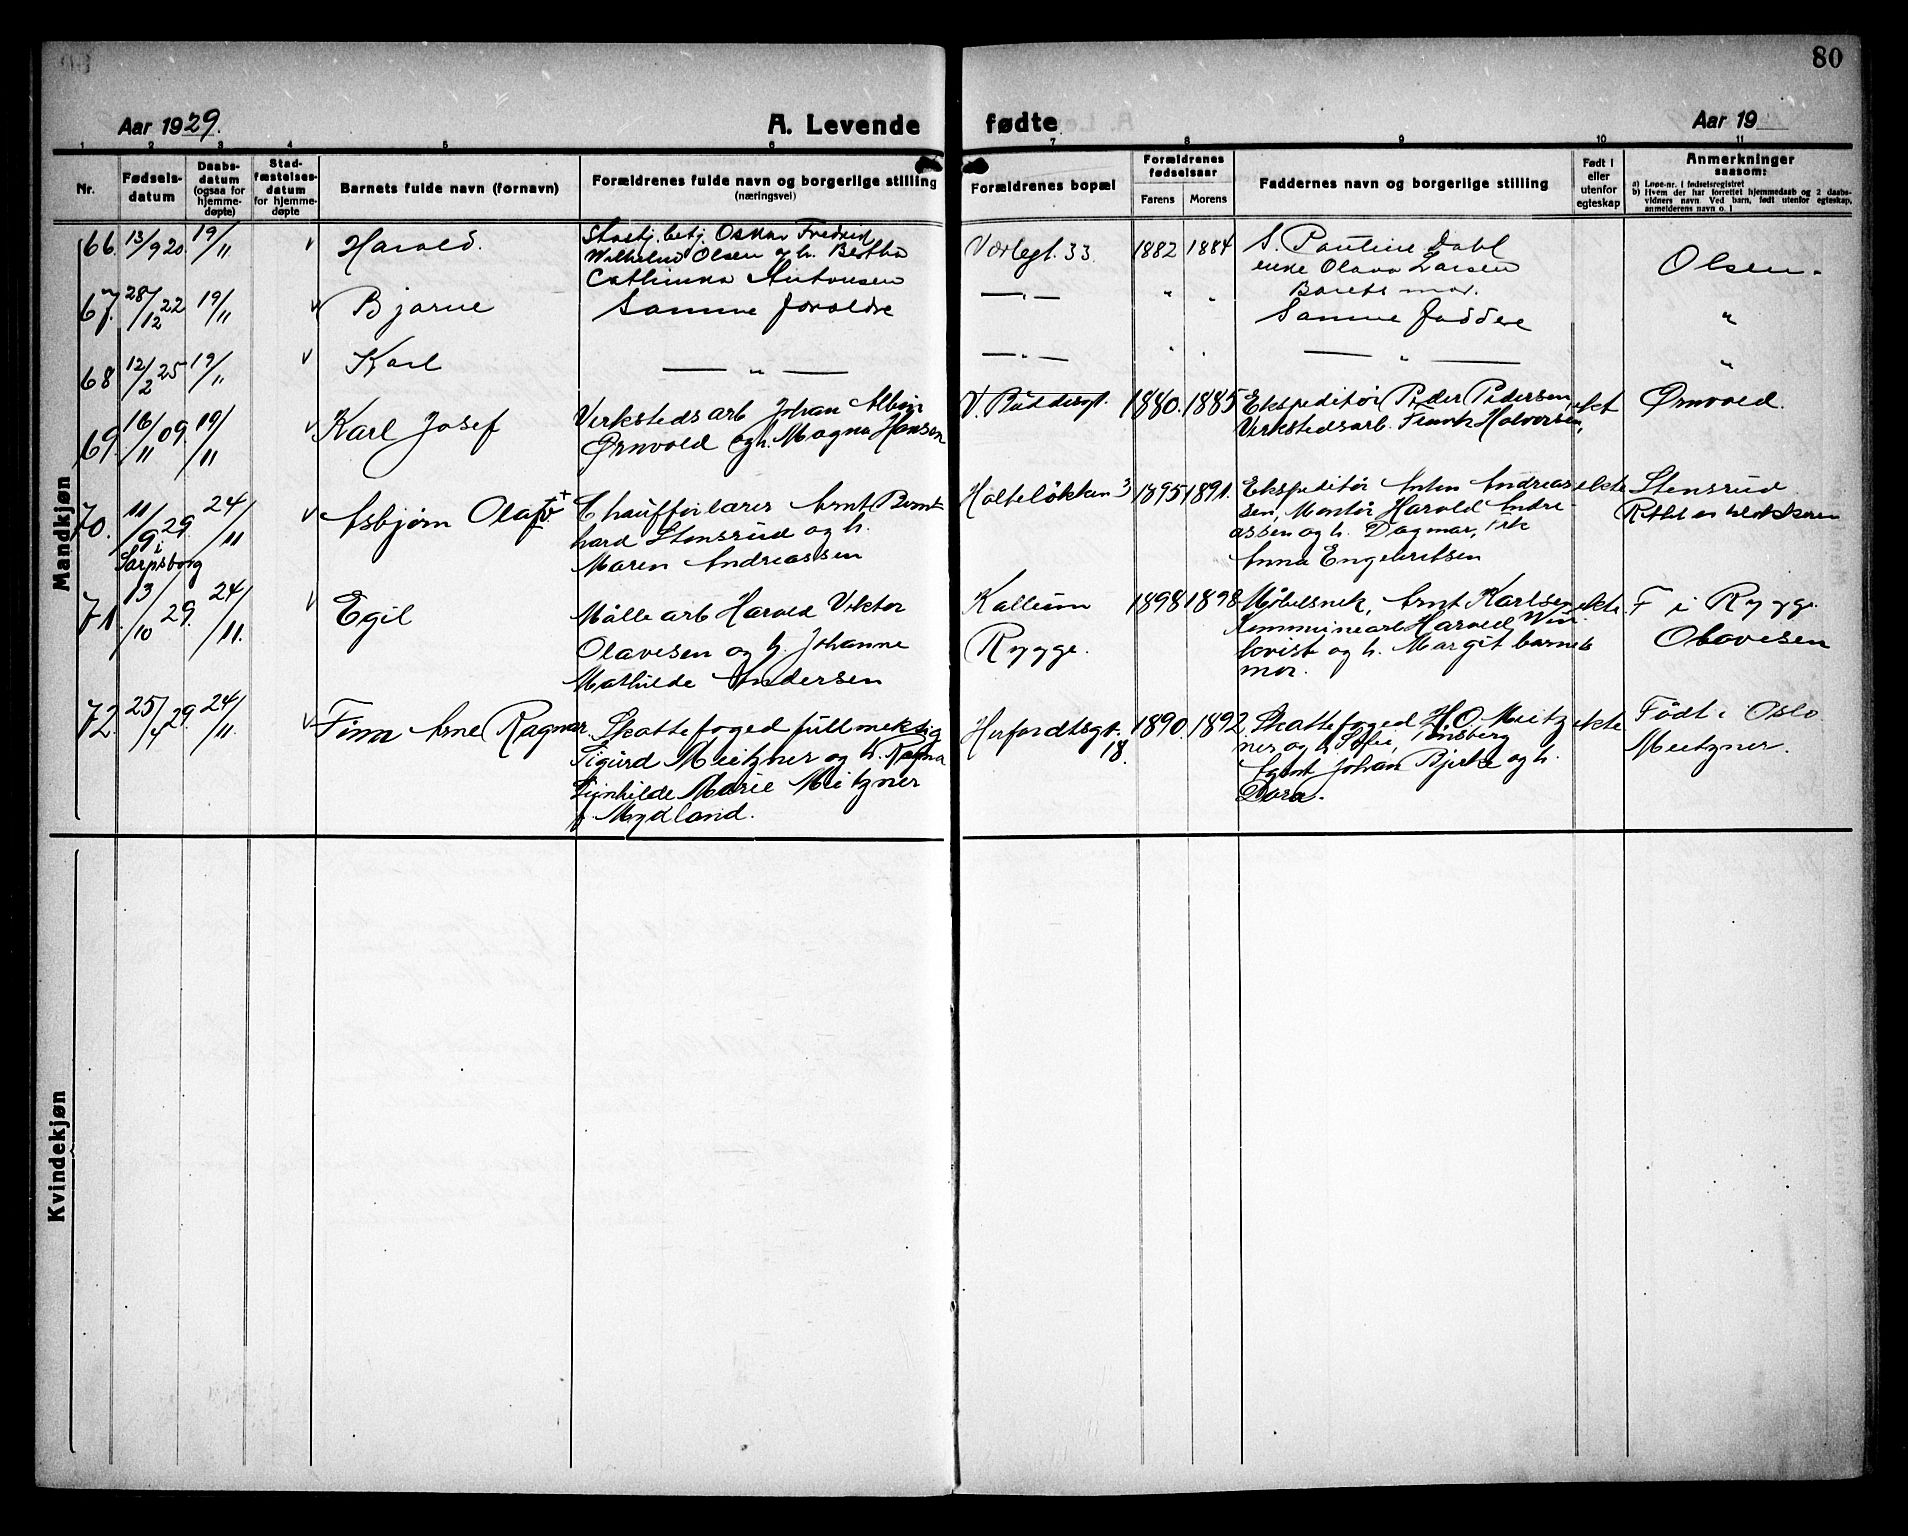 80
Aar 1929.
A. Levende fødte
Aar 19
1 2 3 4 5 6 7 8 9 10 11
Nr.
Fødsels-
datum
Daabs-
datum
(ogsaa for
hjemme-
døpte)
Stad-
fæstelses-
datum
for hjemme-
døpte
Barnets fulde navn (fornavn)
Forældrenes fulde navn og borgerlige stilling
(næringsvei)
Forældrenes bopæl
Forældrenes
fødselsaar
Farens Morens
Faddernes navn og borgerlige stilling
Født i
eller
utenfor
egteskap
Anmerkninger
saasom:
a) Løpe-nr. i fødselsregistret
b) Hvem der har forrettet hjemmedaab og 2 daabs-
vidners navn. Ved barn, født utenfor egteskap,
anmelderens navn o. l
Mandkjøn
66. 13/9 20. 19/11 v Harald.
betj. Oskar Fredrik
Wilhelm Olsen og h. Bertha
Cathinka Antonsen
Værlegt. 33. 1882 1884
S. Pauline Dahl
enke Olava Larsen
Barets mor.
Olsen.
67. 28/12 22 19/11 v Bjarne
Samme forældre
— " — " "
Samme faddere
"
68 12/2 25 19/11 v Karl
— " —
— " — " "
— " —
"
69. 16/11 09. 19/11 v Karl Josef
Verksteds arb Johan Albin
Ørnvold og h. Magna Hansen
V. Buddesgt. 1880. 1885
Ekspeditør Peder Pedersen,
Verkstedsarb. Frank Halvorsen,
ekt
Ørnvold.
70. 11/9 29 i Sarpsborg 24/11 v Asbjørn Olaf +
Chaufførlærer Arnt Bernt
hard Stensrud og h.
Maren Andreassen
Halteløkken 3 1895 1891.
Ekspeditør Anton Andreas
sen, Montør Harald Andre-
assen og h. Dagmar, frk
Anna Engebretsen
ekte
Stensrud
71. 13/10 29. 24/11. v Egil
Mølle arb Harald Viktor
Olavesen og h. Johanne
Mathilde Andersen
Kallum
Rygge.
1898 1898
Møbelsnek, Arnt Karlsen
Kommunearb Harald Win-
kvist og h. Margit barnets
mor.
ekte
F i Rygge.
Olavesen
72. 25/4 29. 24/11. v Finn Arne Ragnar.
Skattefoged fullmektig
Sigurd Meitzner og h. Ragna
Marie Meitzner
f. Mydland.
Herfordtsgt. 18. 1890. 1892
Skattefoged H. O. Meitz
ner og h. Sofie, Tønsberg
Agent Johan Bjerke og h.
Dora.
ekte
Født i Oslo
Meitzner.
Kvindekjøn